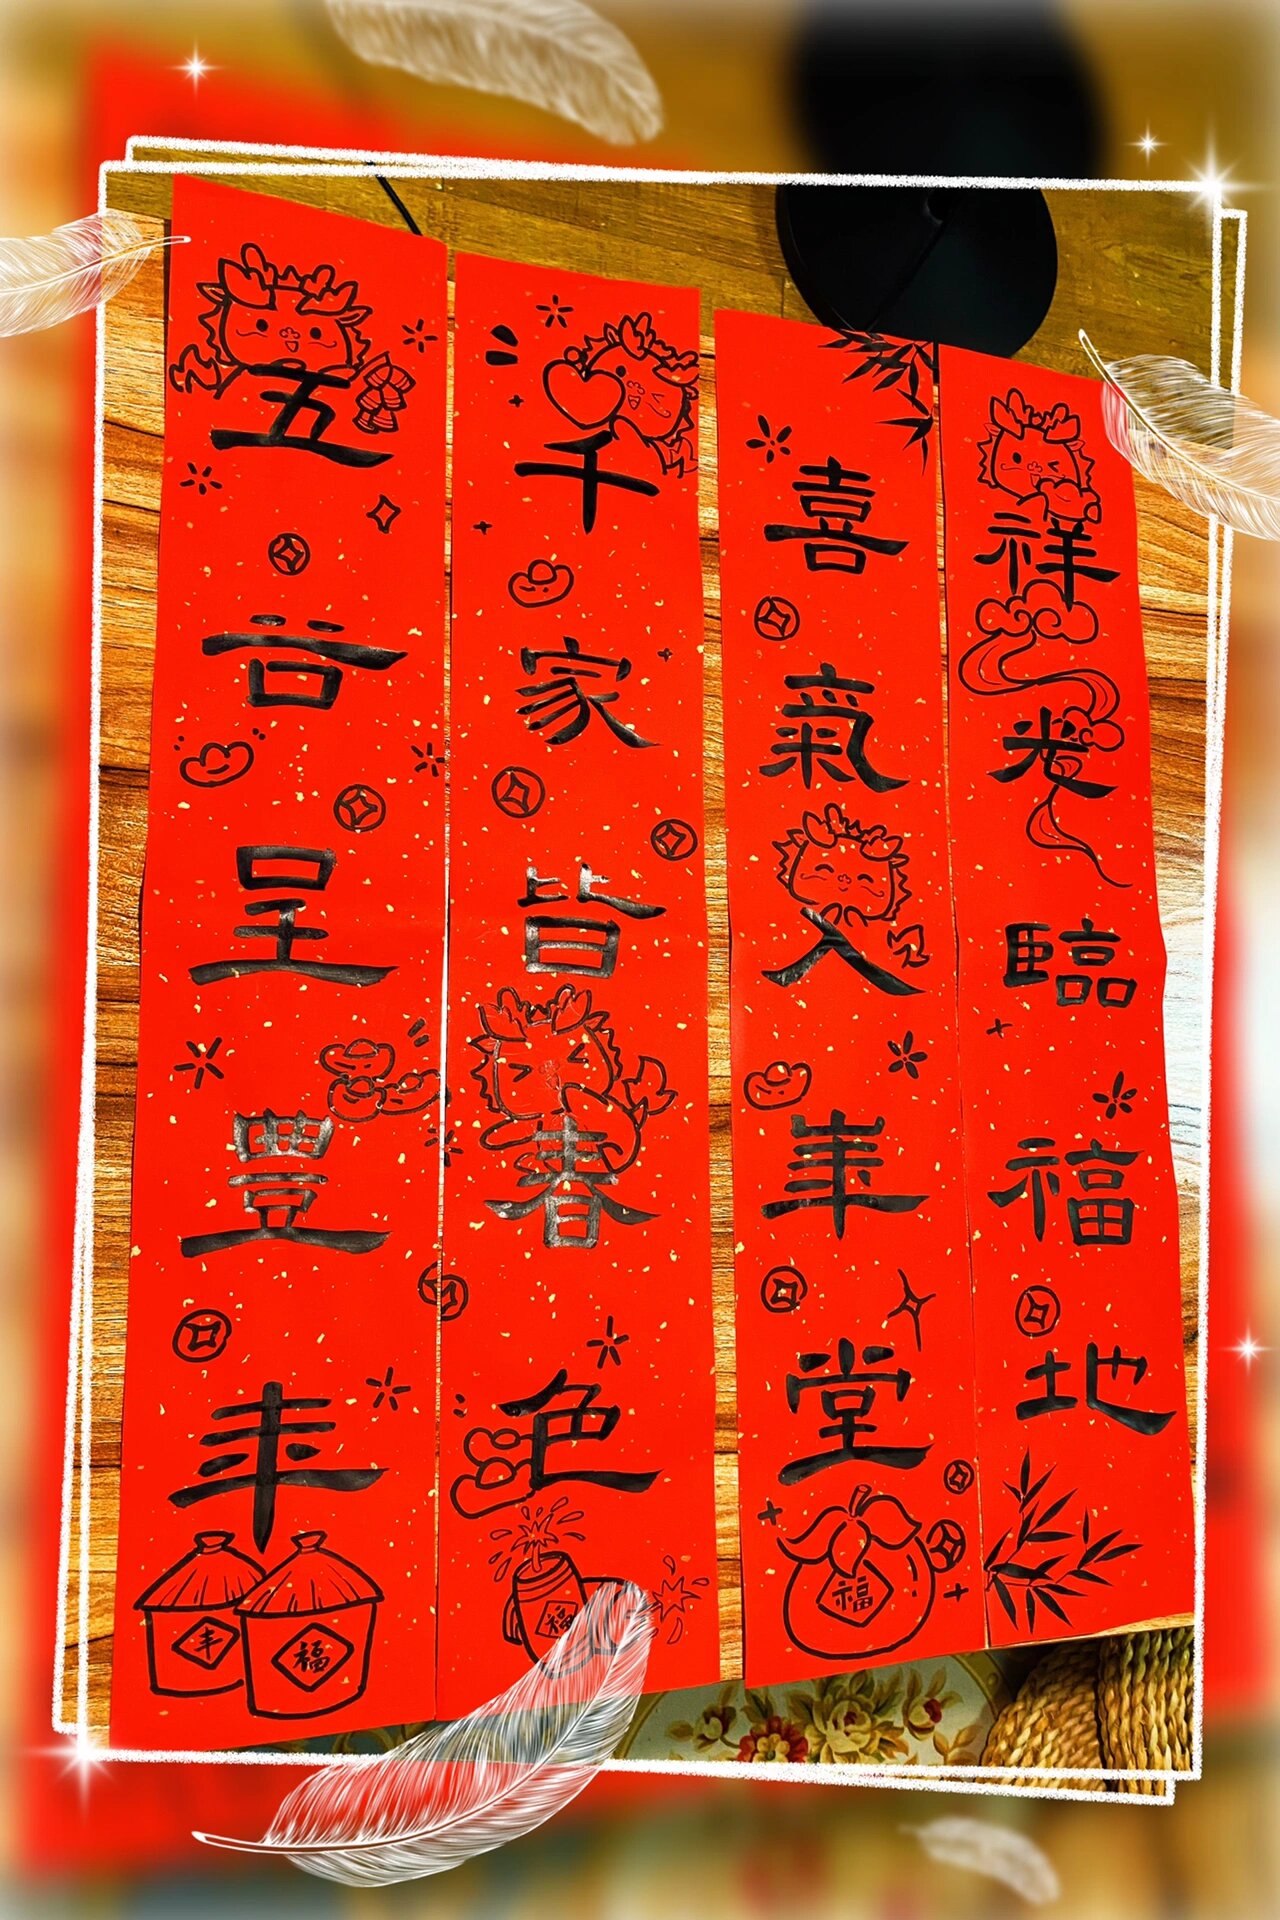 祥光臨福地
喜氣入華堂
福
千家皆春色
福
五谷呈豐年
丰
福